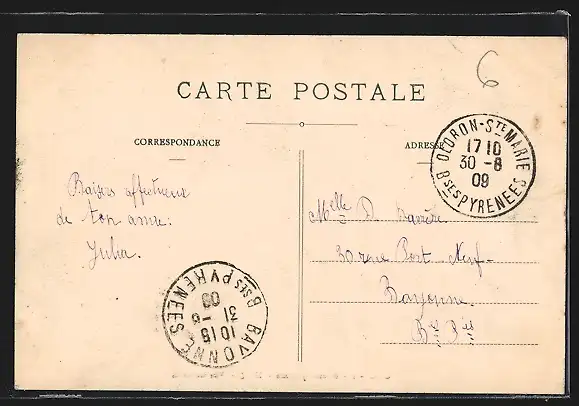 6
CARTE POSTALE
CORRESPONDANCE
ADRESSE
OLORON-STE MARIE
17 10
30 -8
09
BSES PYRENEES
Baisers affectueux
de ton amie:
Julia.
Melle D.
30 rue Port-Neuf-
Bayonne
Bses Pées
BAYONNE
10 15
31 -8
09
BSES PYRENEES